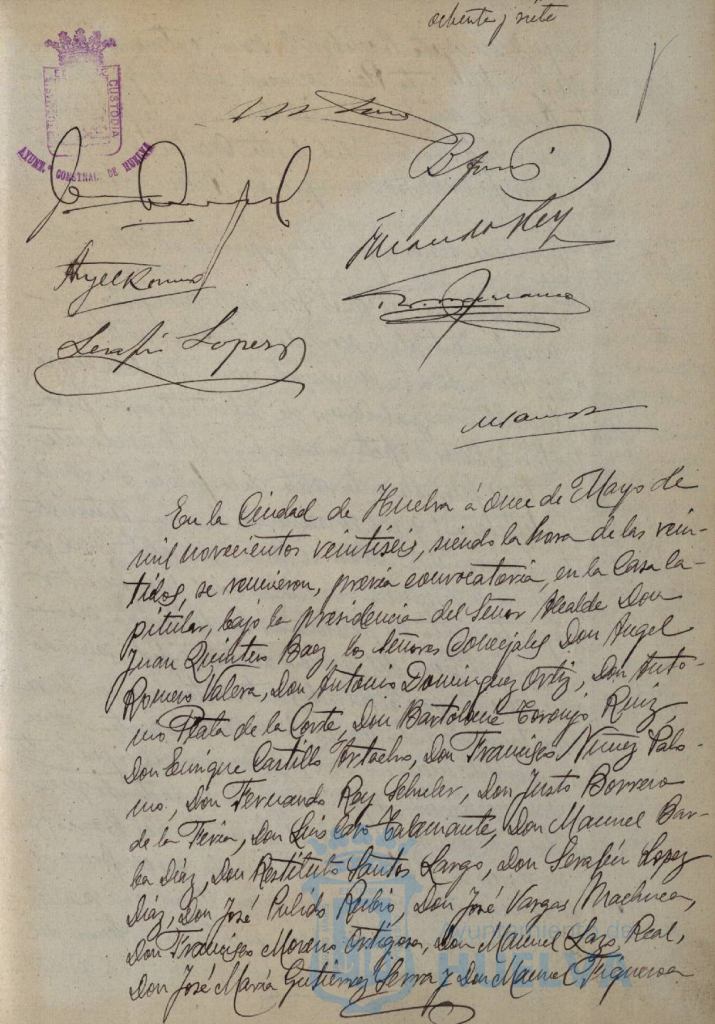 ochenta y siete
CUSTODIA
AYUNT.º CONSTNAL. DE HUELVA
Angel Romero
Fernando Rey
Serafin Lopez
En la Ciudad de Huelva á Once de Mayo de
mil novecientos veintiseis, siendo la hora de las vein-
tidos, se reunieron, previa convocatoria, en la Casa Ca-
pitular, bajo la presidencia del Señor Alcalde Don
Juan Quintero Baez, los Señores Concejales Don Angel
Romero Valera, Don Antonio Dominguez Ortiz, Don Anto-
nio Plata de la Corte, Don Bartolomé Toronjo Ruiz,
Don Enrique Castillo Portacho, Don Francisco Nuñez Palo-
mo, Don Fernando Rey Schuler, Don Justo Borrero
de la Feria, Don Luis Caro Talamante, Don Manuel Bar-
ba Diaz, Don Restituto Santos Largo, Don Serafin Lopez
Diaz, Don José Pulido Rubio, Don José Vargas Machuca,
Don Francisco Moreno Ortigosa, Don Manuel Lazo Real,
Don José María Gutierrez Serra y Don Manuel Figueroa
Ayuntamiento de
HUELVA